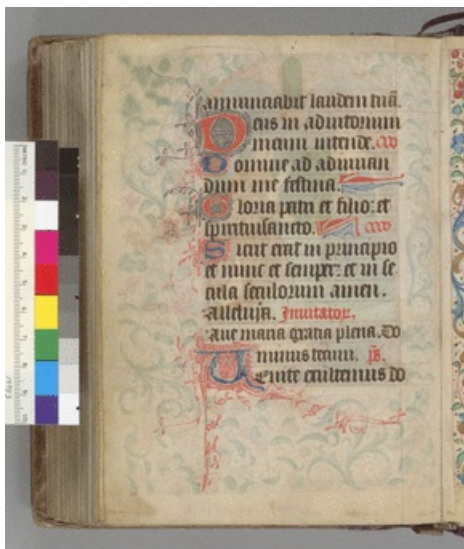 annunciabit laudem tuā.
Deus in adiutorium
meum intende.
Domine ad adiuuan
dum me festina.
Gloria patri et filio: et
spiritui sancto.
Sicut erat in principio
et nunc et semper: et in se
cula seculorum amen.
Alleluja. Inuitator.
Aue maria gratia plena, Do
minus tecum. ps.
Uenite exultemus do